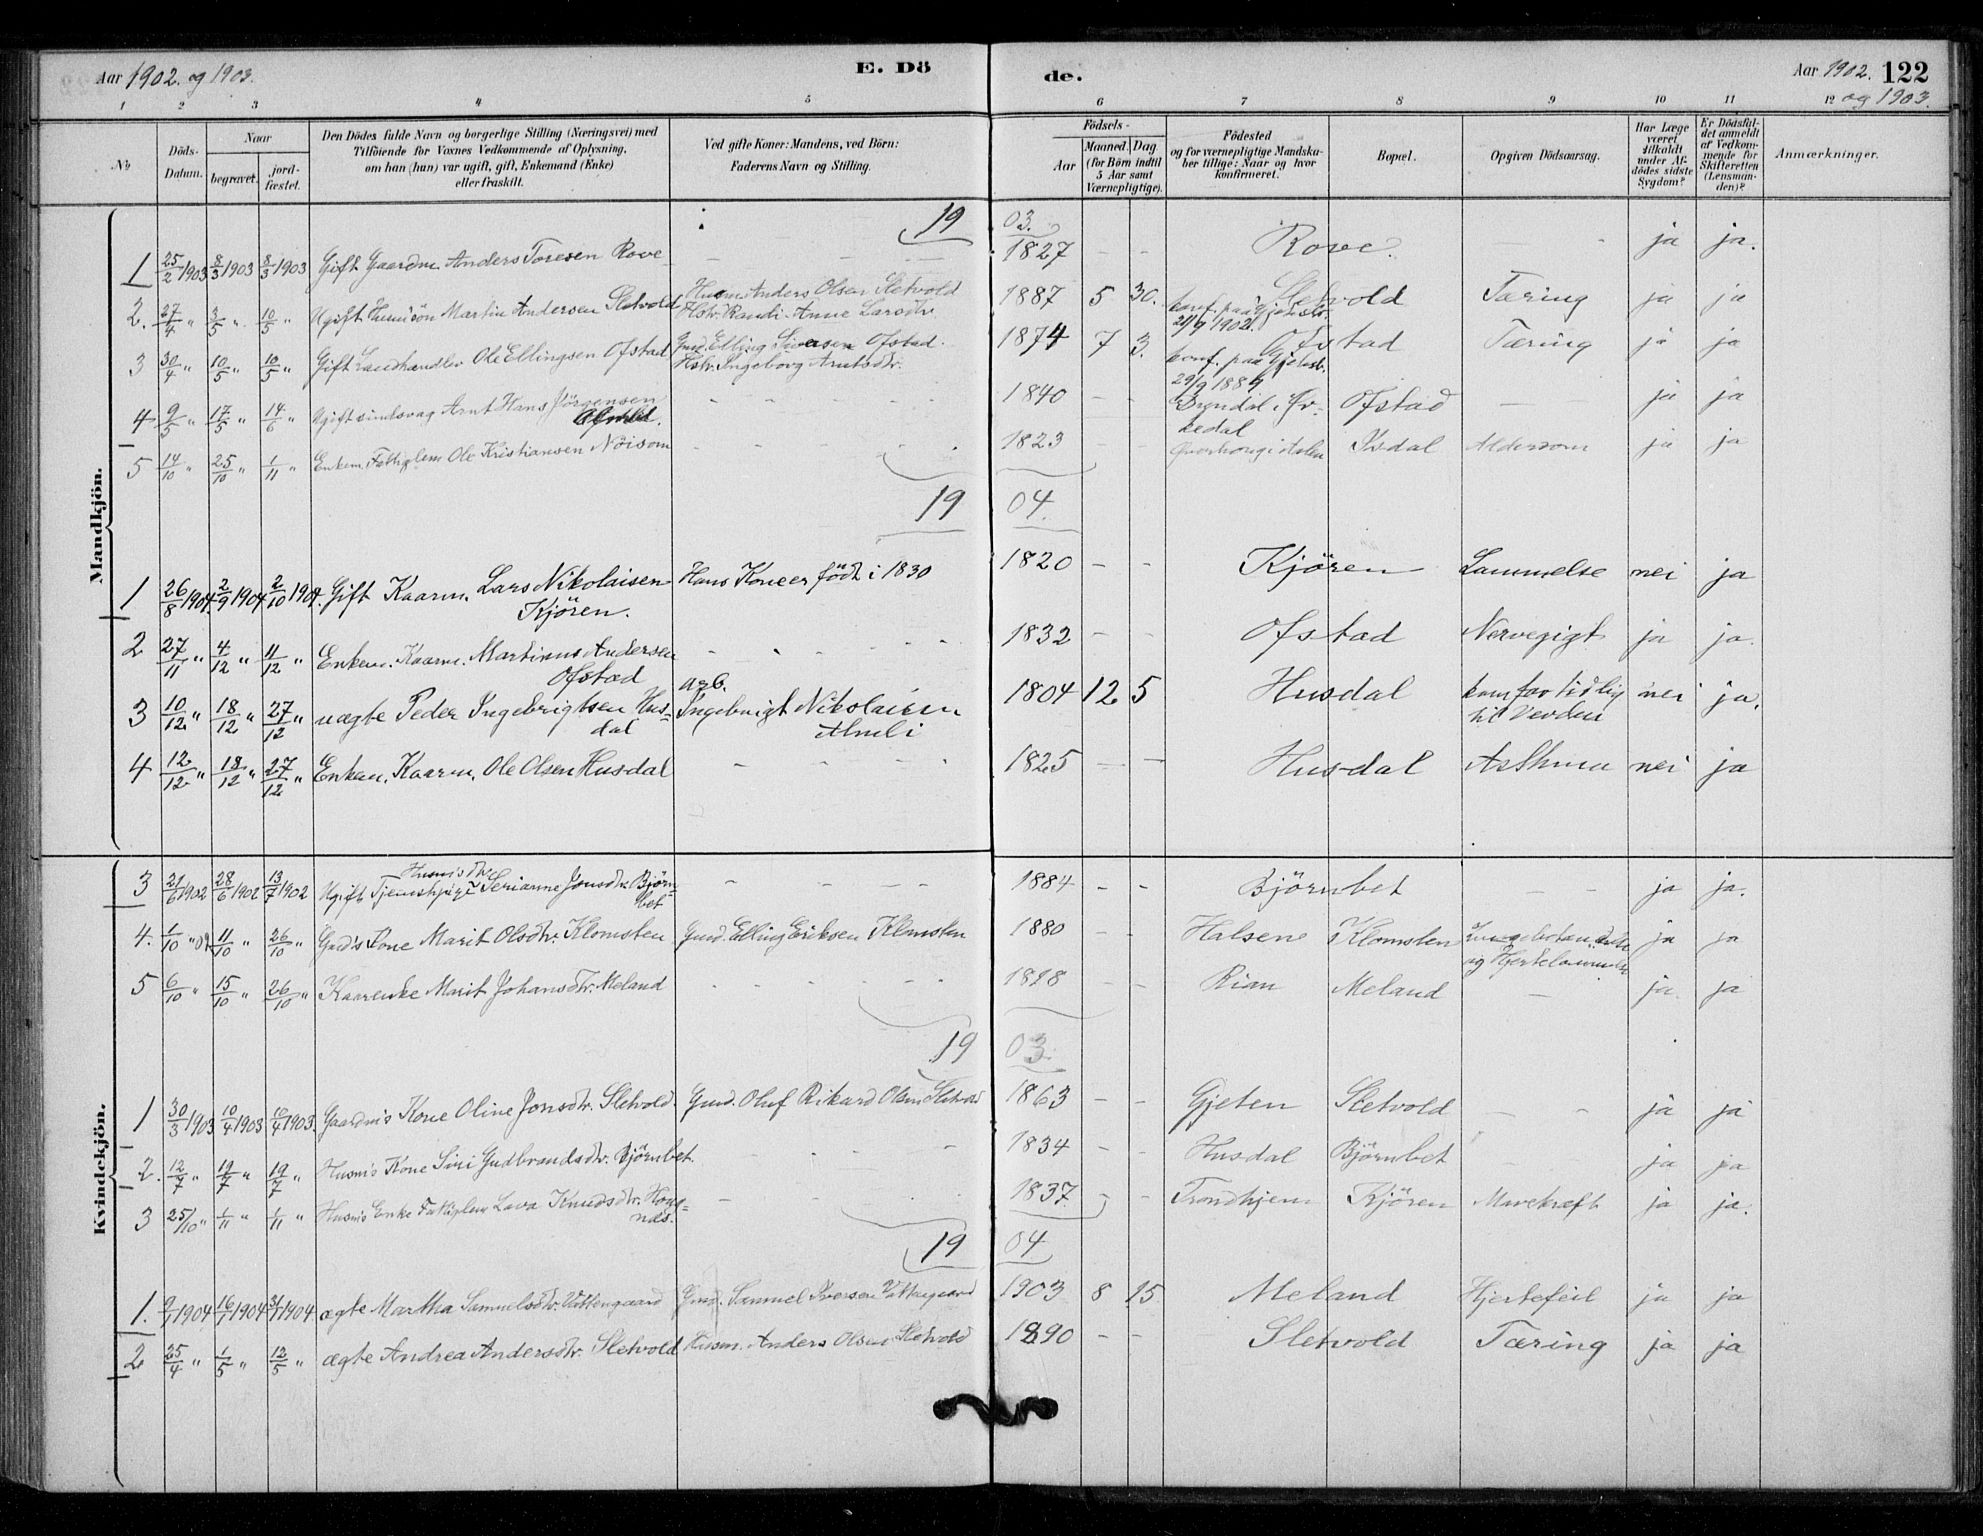 Aar 1902. og 1903.
E. Dö
de.
Aar 1902. 122
og 1903.
1 2 3 4 5 6 7 8 9 10 11 12
No
Döds-Datum.
Naar
begravet.
jord-fæstet.
Den Dödes fulde Navn og borgerlige Stilling (Næringsvei) med
Tilföiende for Voxnes Vedkommende af Oplysning,
om han (hun) var ugift, gift, Enkemand (Enke)
eller fraskilt.
Ved gifte Koner: Mandens, ved Börn:
Faderens Navn og Stilling.
Födsels-
Aar
Maaned. Dag
(for Börn indtil
5 Aar samt
Værnepligtige).
Födested
og for værnepligtige Mandska-
ber tillige: Naar og hvor
konfirmeret.
Bopæl.
Opgiven Dödsaarsag.
Har Læge
været
tilkaldt
under Af-
dödes sidste
Sygdom?
Er Dödsfal-
det anmeldt
af Vedkom-
mende for
Skifteretten
(Lensman-
den)?
Anmærkninger.
Mandkjön.
19 03.
1 25/2 1903 8/3 1903 8/3 1903 Gift Gaardm. Anders Toresen Rove - - - 1827 - - Rove. - ja ja.
2. 27/4 " 3/5 " 10/5 " Ugift Husmsön Martin Andersen Sletvold Husm Anders Olsen Sletvold 1887 5 30. Sletvold Tæring ja ja
Hstr. Randi Anne Larsdtr. konf. paa Gjetastr.
21/9 1902.
3 30/4 " 10/5 " 10/5 " Gift Landhandler Ole Ellingsen Ofstad Gmd. Elling Siversen Ofstad. 1874 7 3. Ofstad Tæring ja ja
Hstr. Ingeborg Arntsdtr. konf. paa Gjetastr.
29/9 1889
4 9/5 " 17/5 " 14/6 " Ugift sindsvag Arnt Hans Jörgensen - - - 1840 - - Brendal i Ør- Ofstad - - ja ja
Ofstad. kedal
5 14/10 " 25/10 " 1/11 " Enkem. Fattiglem Ole Kristiansen Nöisom - - - 1823 - - Isdal Alderdom ja ja
19 04.
1 26/8 1904 2/9 1904 2/10 1904. Gift Kaarm. Lars Nikolaisen Hans Kone er född i 1830 1820 - - Kjören Lammelse nei ja
Kjören.
2 27/11 " 4/12 " 11/12 " Enkem. Kaarm. Martinus Andersen - - - 1832 - - Ofstad Nervegigt ja ja.
Ofstad
3 10/12 " 18/12 " 27/12 " uægte Peder Ingebrigtsen Hus- arb. 1804 12 5 Husdal kom for tidlig nei ja.
dal Ingebrigt Nikolaisen til Verden
Almli
4 12/12 " 18/12 " 27/12 " Enkem. Kaarm. Ole Olsen Husdal - - - 1825 - - Husdal Asthma nei ja
Kvindekjön.
Husmsdtr.
3 21/6 1902 28/6 1902 13/7 1902 Ugift Tjenestpige Serianne Jonsdtr. Björn- - - - 1884 - - Björnbet - - ja ja.
bet
4. 1/10 " 11/10 " 26/10 " Gmd's Kone Marit Olsdtr. Klomsten Gmd. Elling Eriksen Klomsten 1880 - - Halsene Klomsten ja ja
5 6/10 " 15/10 " 26/10 " Kaarenke Marit Johansdtr. Meland - - - 1828 - - Rian Meland - ja ja
19 03.
1 30/3 1903 10/4 1903 10/4 1903. Gaardms Kone Oline Jonsdtr. Sletvold. Gmd. Oluf Rikard Olsen Sletvold 1863 - - Gjeten Sletvold - - ja ja
2. 12/7 " 19/7 " 19/7 " Husm's Kone Siri Gudbrandsdtr. Björnbet. - - - 1834 - - Husdal Björnbet - - ja ja
3 25/10 " 1/11 " 1/11 " Husm's Enke Fattiglem Lava Knudsdtr. Houg- - - - 1837. - - Trondhjem Kjören Mavekræft ja ja.
næs.
19 04
1. 9/1 1904 16/1 1904 31/1 1904. ægte Martha Samuelsdtr. Vattengaard Gmd. Samuel Iversen Vattengaard 1903 8 15 Meland Hjertefeil ja ja
2 25/4 " 1/5 " 12/5 " ægte Andrea Andersdtr. Sletvold Husm. Anders Olsen Sletvold 1890 - - Sletvold Tæring ja ja